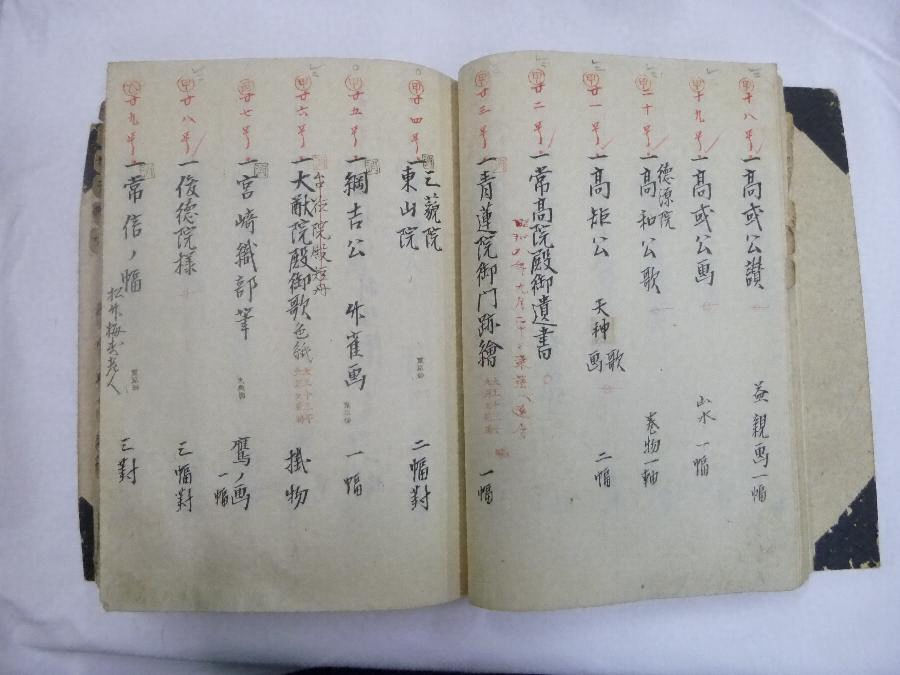 十八号 一高或公讃 益親画一幅
甲 十九号 一高或公画 山水 一幅
甲 二十号 一高和公歌 巻物一軸
徳源院
甲 廿一号 一高矩公 天神 歌 画 二幅
甲 廿二号 一常高院殿御遺書
昭和 年九月二十
甲 廿三号 一青蓮院御門跡繪 一幅
甲 廿四号 一三藐院 東山院 二幅對
甲 廿五号 一綱吉公 竹雀画 一幅
甲 廿六号 一大猷院殿御歌色紙 掛物
台徳院殿
廿七号 一宮崎織部筆 鷹ノ画 一幅
甲 廿八号 一俊徳院様 三幅對
廿九号 一常信ノ幅 三對
松竹梅 老人